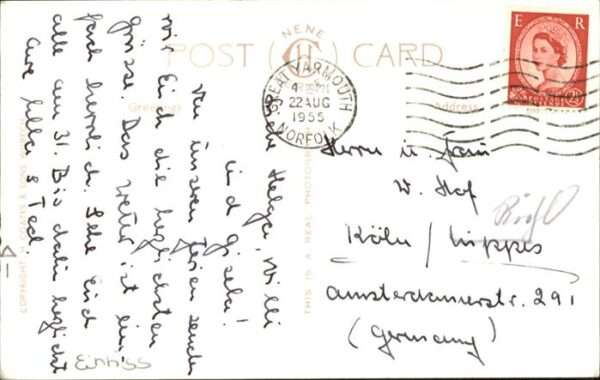 NENE
POST CARD
Greetings
Address
E R
GREAT YARMOUTH
22 AUG
1955
NORFOLK
Liebe Helga, Willi
und Gisela!
Von unseren Ferien senden
wir Euch die herzlichsten
Grüsse. Das Wetter ist ein-
fach herrlich. Sehe Euch
alle am 31. Bis dahin herzlichst
Eure Ella & Ted.
Herrn u. Frau
W. Hof
Köln / Nippes
Amsterdamerstr. 291
(Germany)
THIS IS A REAL PHOTOGRAPH
COPYRIGHT